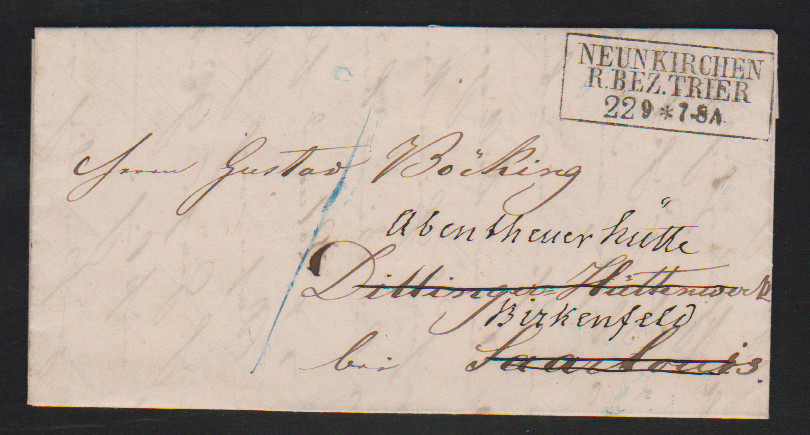 NEUNKIRCHEN
R.BEZ.TRIER
22 9 * 7-8A
Herrn Gustav Böcking
Abentheuerhütte
Dillinger Hüttenwerk
Birkenfeld
bei Saarlouis.